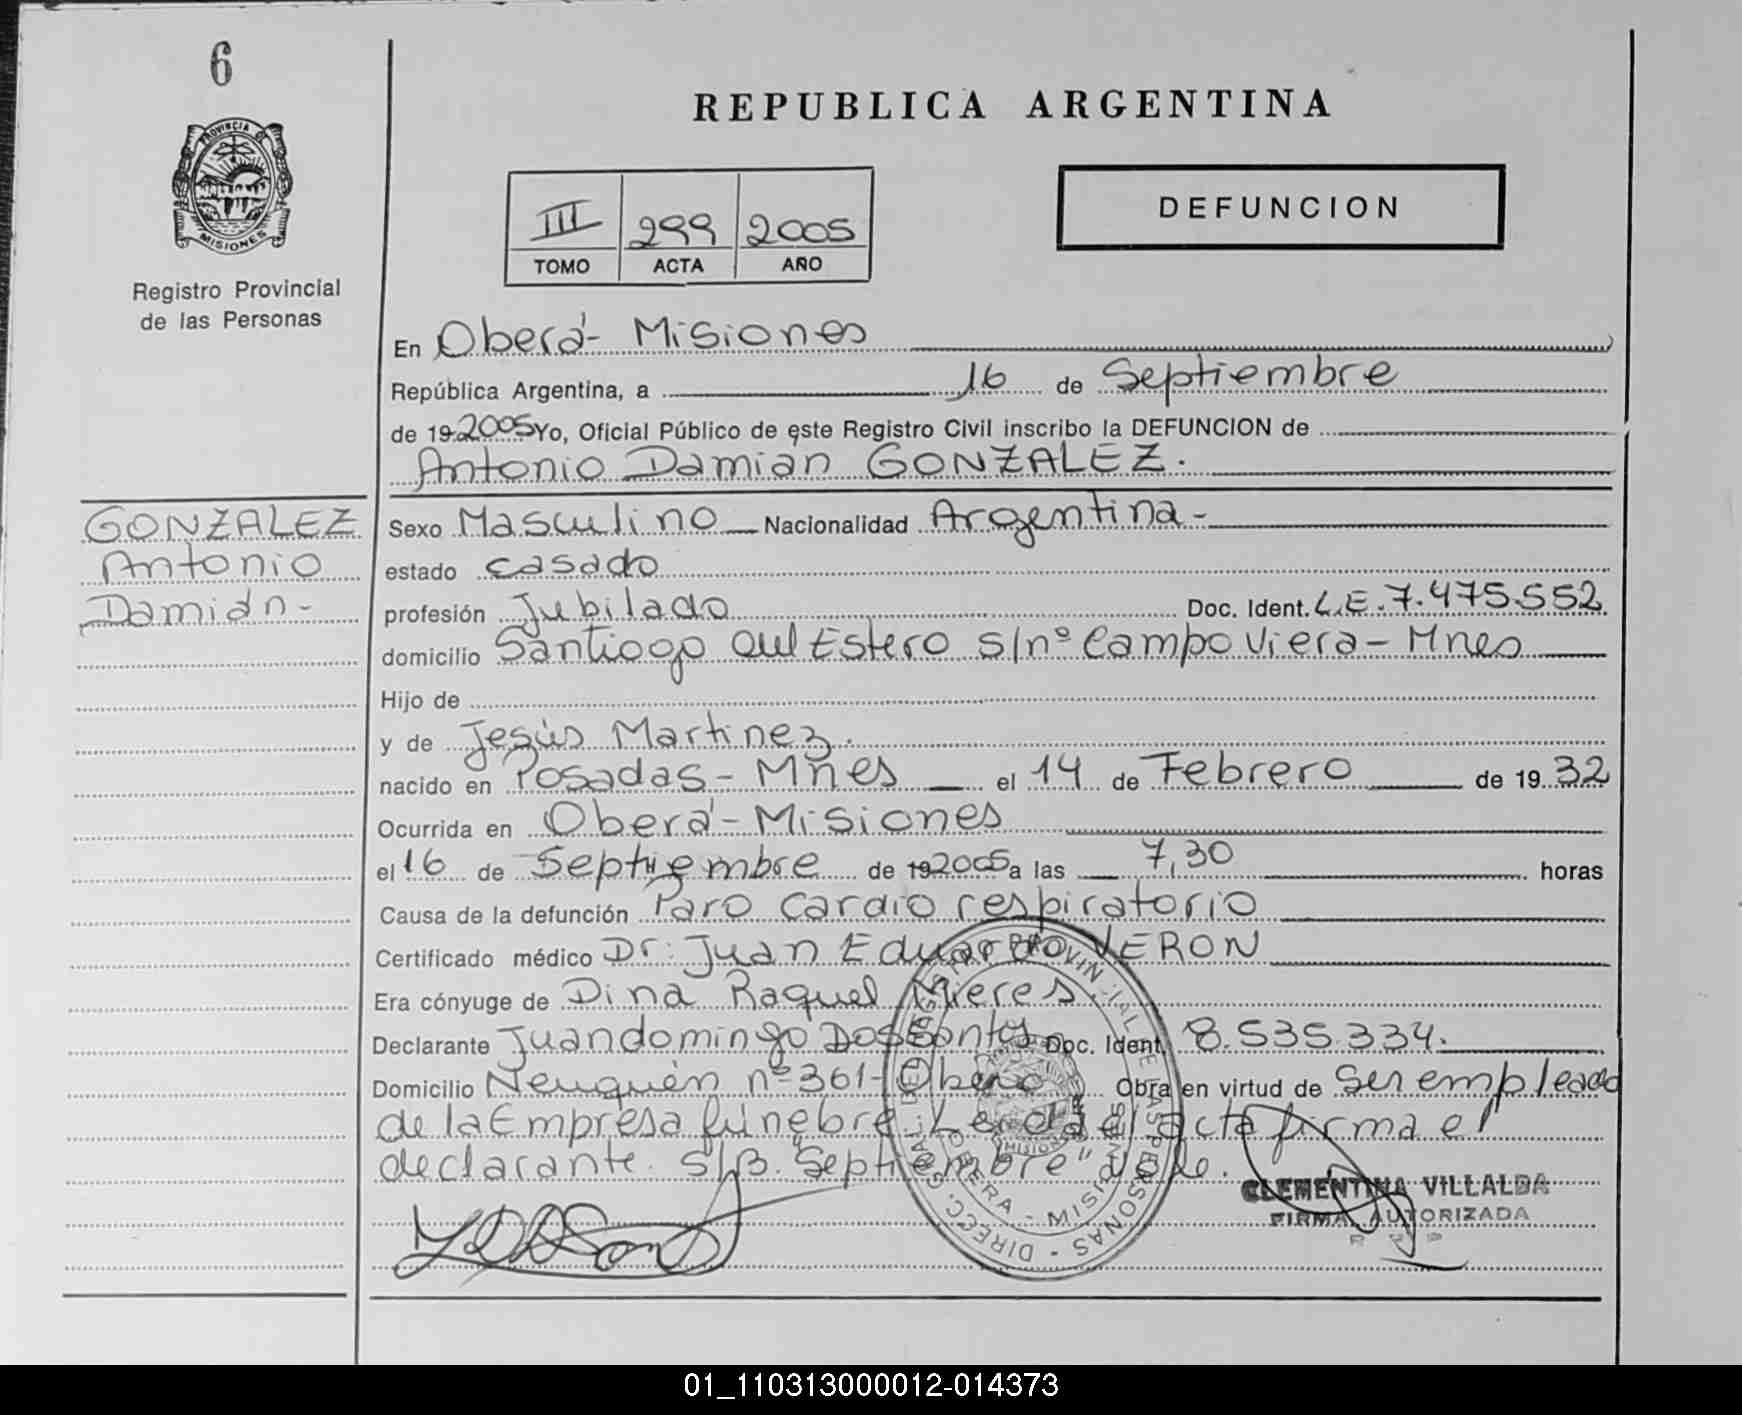 6
PROVINCIA DE
MISIONES
Registro Provincial
de las Personas
REPUBLICA ARGENTINA
III 299 2005
TOMO ACTA AÑO
DEFUNCION
En Oberá - Misiones
República Argentina, a 16 de Septiembre
de 19 2005 Yo, Oficial Público de este Registro Civil inscribo la DEFUNCION de
Antonio Damian GONZALEZ.
GONZALEZ
Antonio
Damián -
Sexo Masculino Nacionalidad Argentina -
estado casado
profesión Jubilado Doc. Ident. L.E. 7.475.552
domicilio Santiago del Estero s/nº Campo Viera - Mnes
Hijo de
y de Jesús Martinez.
nacido en Posadas - Mnes el 14 de Febrero de 19 32
Ocurrida en Oberá - Misiones
el 16 de Septiembre de 19 2005 a las 7,30 horas
Causa de la defunción Paro Cardio respiratorio
Certificado médico Dr: Juan Eduardo VERON
Era cónyuge de Dina Raquel Mieres.
Declarante Juan domingo Dos Santos Doc. Ident. 8.535.334.
Domicilio Neuquén nº 361 - Oberá Obra en virtud de Ser empleado
de la Empresa fúnebre. Leída el acta firma el
declarante. S/B. "Septiembre" Vale.
CLEMENTINA VILLALBA
FIRMA AUTORIZADA
R P P
DIRECC. GRAL. DEL REGISTRO PROVINCIAL DE LAS PERSONAS -
OBERA - MISIONES
MISIONES
01_110313000012-014373